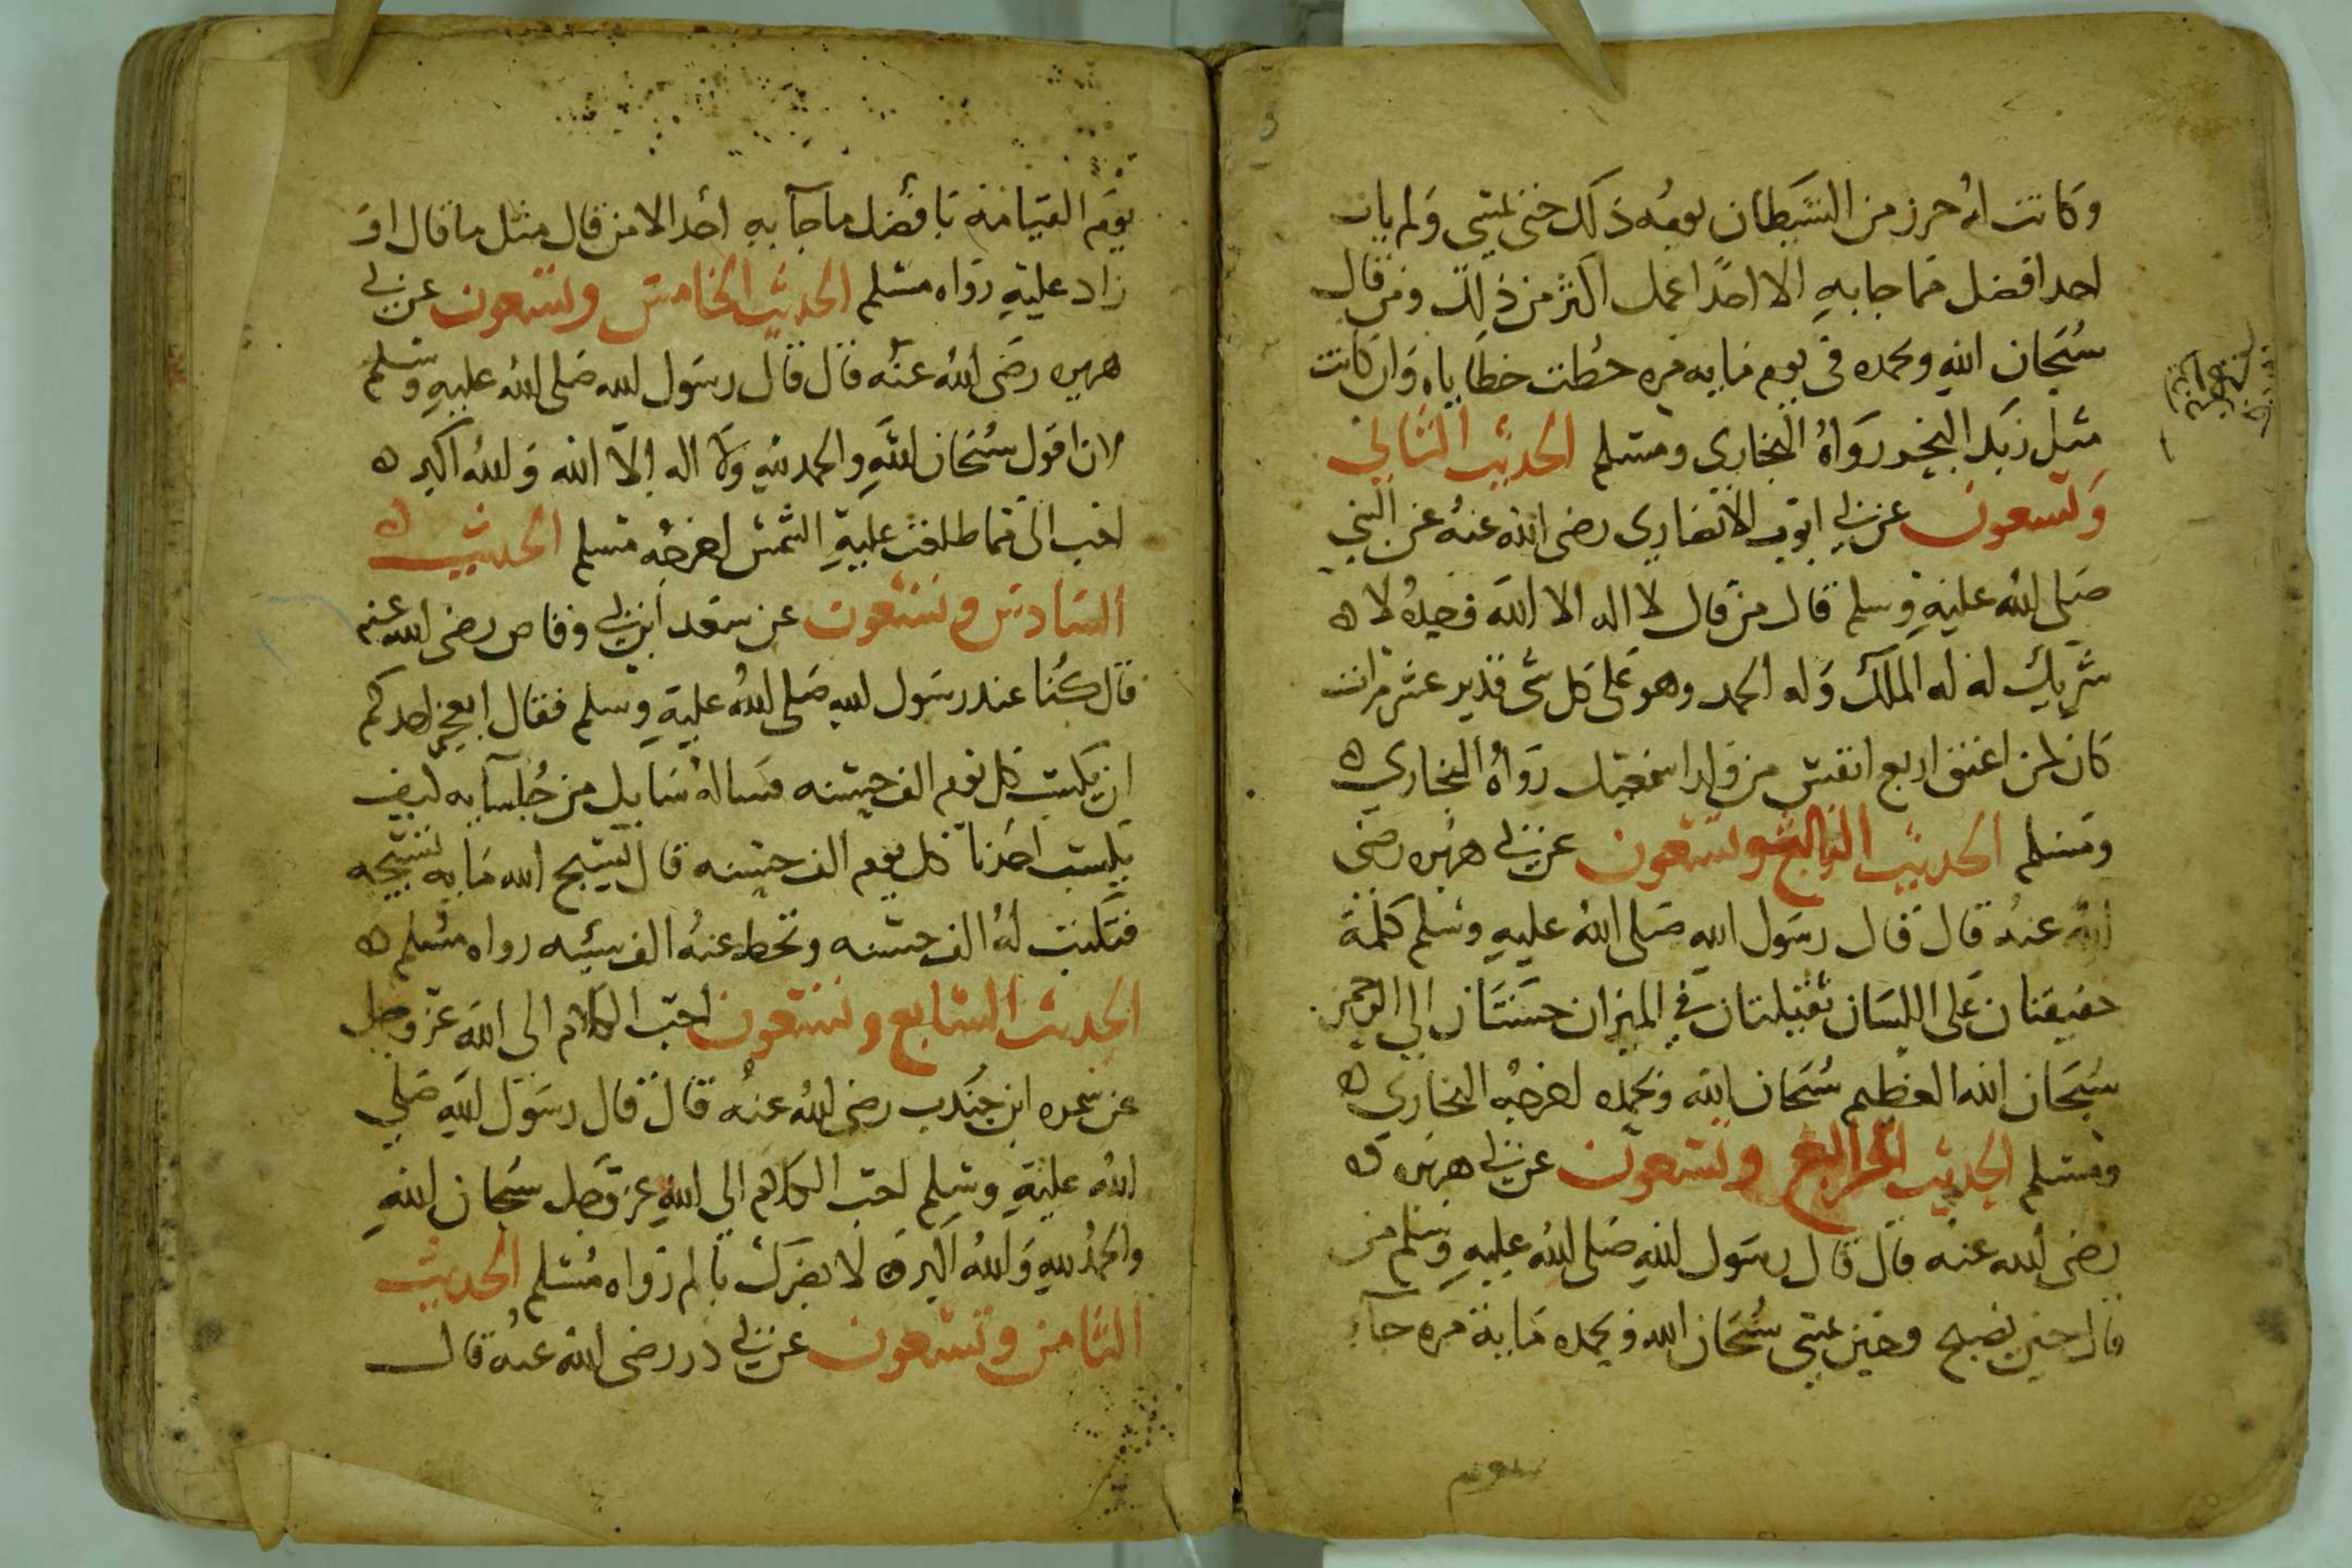 وكانت له حرز من الشيطان يومه ذلك حتى يمسي ولم يات
احد افضل مما جا به الا احدا عمل اكثر من ذلك ومن قال
سبحان الله وبحمده في يوم مايه مره حطت خطاياه وان كانت
مثل زبد البحر رواه البخاري ومسلم الحديث الثاني
وتسعون عن ابي ايوب الانصاري رضي الله عنه عن النبي
صلى الله عليه وسلم قال من قال لا اله الا الله وحده لا ه
شريك له له الملك وله الحمد وهو على كل شي قدير عشر مرات
كان كمن اعتق اربع انفس من ولد اسمعيل رواه البخاري ه
ومسلم الحديث الثالث وتسعون عن ابي هريره رضي
الله عنه قال قال رسول الله صلى الله عليه وسلم كلمة
خفيفتان على اللسان ثقيلتان في الميزان حسنتان الى الرحمن
سبحان الله العظيم سبحان الله وبحمده اخرجه البخاري ه
ومسلم الحديث الرابع وتسعون عن ابي هريره ه
رضي الله عنه قال قال رسول الله صلى الله عليه وسلم من
قال حين يصبح وحين يمسي سبحان الله وبحمده ماية مره جآء
يوم
يوم القيامة بافضل ما جآ به احد الا من قال مثل ما قال او
زاد عليه رواه مسلم الحديث الخامس وتسعون عن ابي
هريره رضي الله عنه قال قال رسول الله صلى الله عليه وسلم
لان اقول سبحان الله والحمد لله ولا اله الا الله والله اكبر ه
احب الى مما طلعت عليه الشمس اخرجه مسلم الحديث ه
السادس وتسعون عن سعد ابن ابي وقاص رضي الله عنه
قال كنا عند رسول الله صلى الله عليه وسلم فقال ايعجز احدكم
ان يكتب كل يوم الف حسنه فساله سايل من جلسآيه كيف
يكتب احدنا كل يوم الف حسنه قال يسبح الله مايه تسبيحه
فتكتب له الف حسنه وتحط عنه الف سيئه رواه مسلم ه
الحديث السابع وتسعون احب الكلام الى الله عز وجل
عن سمره ابن جندب رضي الله عنه قال قال رسول الله صلي
الله عليه وسلم احب الكلام الى الله عز وجل سبحان الله
والحمد لله والله اكبر ه لا يضرك بالم رواه مسلم الحديث
الثامن وتسعون عن ابي ذر رضي الله عنه قال